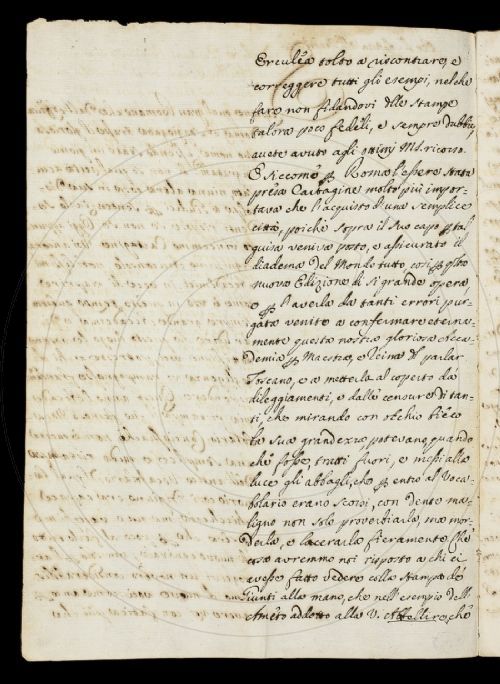 Erculea tolto a riscontrare, e
correggere tutti gli esempi, nel che
fare non fidandovi dlle Stampe
talora poco fedeli, e sempre dubbie,
avete avuto agli ottimj MS. ricorso.
E siccome ꝑ Roma l'essere stata
presa Cartagine molto più impor-
tava che l'acquisto d'una semplice
città, poichè sopra il suo capo ꝑ tal
guisa veniva posto, e assicurato il
diadema del Mondo tutto, così ꝑ qsta
nuova Edizione di sì grande opera,
e ꝑ l'averla da tanti errori pur-
gata venite a confermare eterna-
mente questa nostra gloriosa Acca-
demia ꝑ Maestra, e Reina dl parlar
Toscano, e a metterla al coperto da'
dileggiamenti, e dalle censure di tan-
ti, che mirando con occhio bieco
la sua grandezza, potevano, quando
che fosse, tratti fuori, e messi alla
luce gli abbagli, che ꝑ entro al Voca-
bolario erano scorsi, con dente ma-
ligno non solo proverbiarla, ma mor-
derla, e lacerarla fieramente. Che
cosa avremmo noi risposto a chi ci
avesse fatto vedere colla Stampa de'
Giunti alla mano, che nell'esempio dell'
Ameto addotto alla V. che